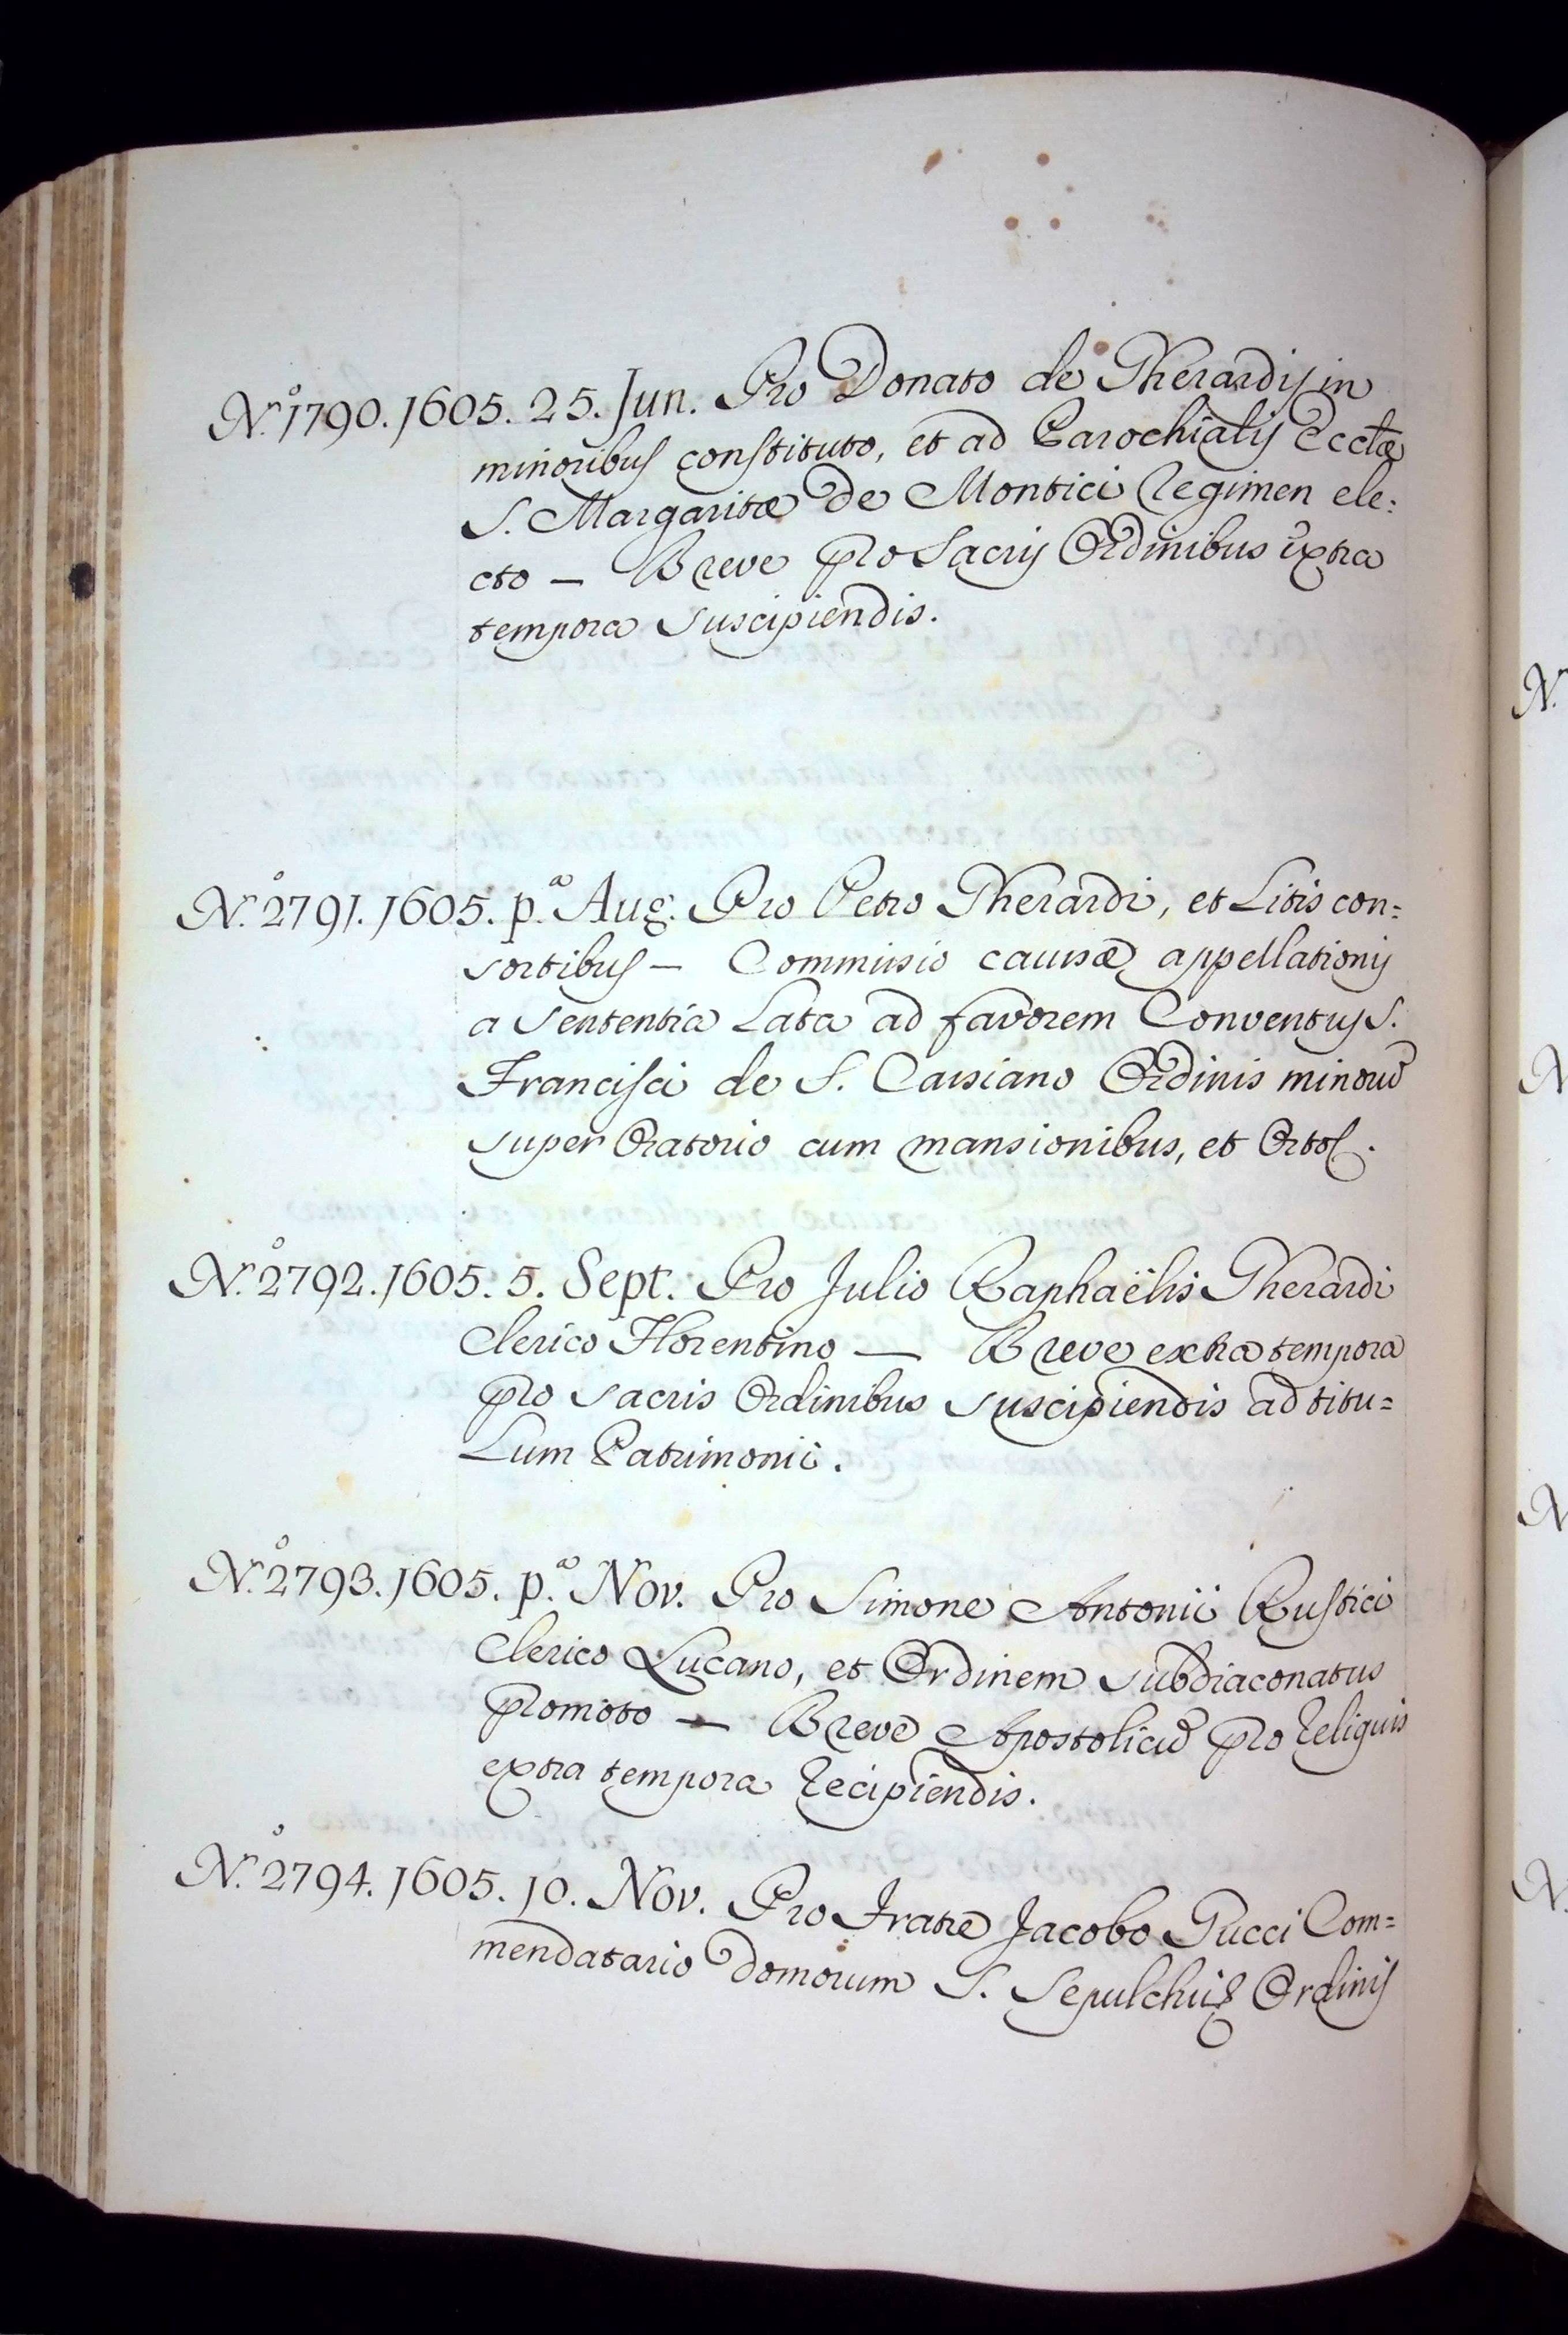 N.º 1790. 1605. 25. Jun. Pro Donato de Gherardis in
minoribus constituto, et ad Parochialis Ecclæ
S. Margaritæ de Montici Regimen ele:
cto — Breve pro Sacris Ordinibus extra
tempora suscipiendis.
N.º 2791. 1605. p.ª Aug. Pro Petro Gherardi, et Litis con:
sortibus — Commissio causæ appellationis
a sententia Lata ad favorem Conventus S.
Francisci de S. Cassiano Ordinis minorũ
super Oratorio cum mansionibus, et Orto.
N.º 2792. 1605. 5. Sept. Pro Julio Raphaëlis Gherardi
Clerico Florentino — Breve extra tempora
pro sacris Ordinibus suscipiendis ad titu=
Lum Patrimonii.
N.º 2793. 1605. p.ª Nov. Pro Simone Antonii Rustici
Clerico Lucano, et Ordinem subdiaconatus
promoto — Breve Apostolicũ pro Reliquis
extra tempora Recipiendis.
N.º 2794. 1605. 10. Nov. Pro Fratre Jacobo Pucci Com=
mendatario domorum S. Sepulchri, Ordinis
N.
N
N
N.